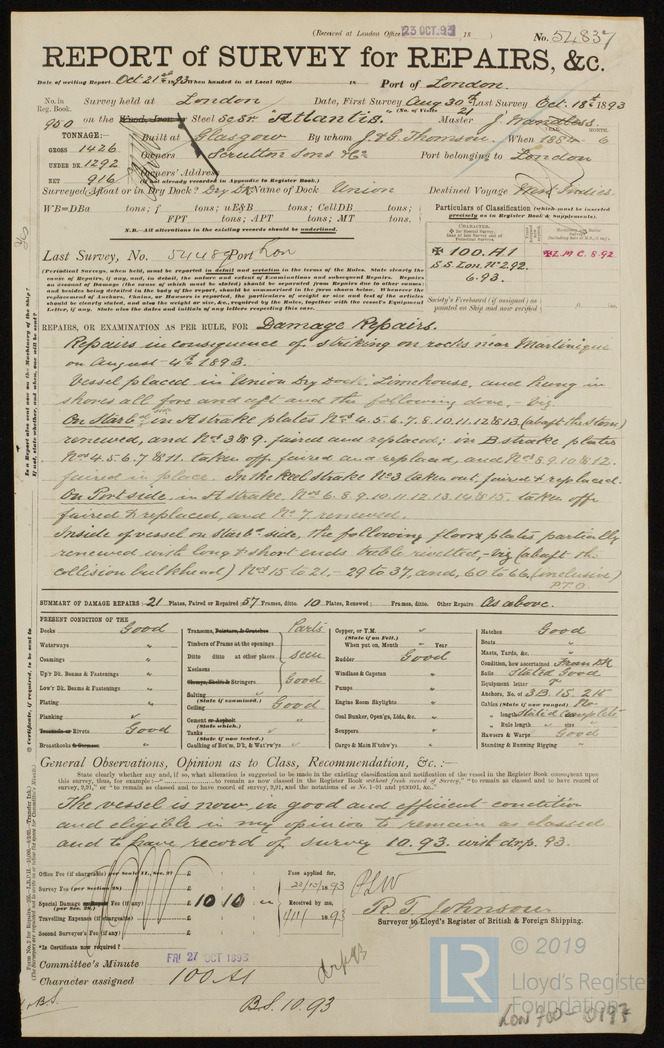 (Received at London Office 23 OCT. 93 18 )
No. 54837
REPORT of SURVEY for REPAIRS, &c.
Date of writing Report Oct 21st 1893 When handed in at Local Office 18 Port of London.
No. in Reg. Book. Survey held at London Date, First Survey Aug 30th Last Survey Oct. 18th 1893
(No. of Visits 21
960 on the Wood, Iron or Steel Sc Sr. Atlantis Master J.
TONNAGE:—
GROSS 1426
UNDER DK. 1292
NET 916
Built at Glasgow By whom J. & G. Thomson. When 1884 MONTH. 6
Owners Scrutton Sons & Co Port belonging to London
Owners' Address
(If not already recorded in Appendix to Register Book.)
Surveyed Afloat or in Dry Dock? Dry Dk Name of Dock Union Destined Voyage West Indies.
WB=DBa tons; f tons; uE&B tons; CellDB tons;
FPT tons; APT tons; MT tons.
N.B.—All alterations in the existing records should be underlined.
Particulars of Classification (which must be inserted precisely as in Register Book & Supplements).
CHARACTER.
✠ 100. A1
S.S. Lon. No 2. 92.
6.93.
✠ L M C. 8.92
Last Survey, No. 54489 Port Lon
Society's Freeboard (if assigned) as painted on Ship and now verified
REPAIRS, OR EXAMINATION AS PER RULE, FOR Damage Repairs.
Repairs in consequence of striking on rocks near Martinique
on August 4th 1893.
Vessel placed in Union Dry Dock, Limehouse, and hung in
shores all fore and aft and the following done,- viz
On Starbd side in A strake plates Nos 4. 5. 6. 7. 8. 10. 11. 12 & 13 (abaft the stem)
renewed, and Nos 3 & 9. faired and replaced; in B strake plates
Nos 4. 5. 6. 7 & 11. taken off faired and replaced, and Nos 8. 9. 10 & 12.
faired in place. In the keel strake No 3 taken out, faired & replaced.
On Port side, in A strake, Nos 6. 8. 9. 10. 11. 12. 13. 14 & 15. taken off
faired & replaced, and No 7. renewed.
Inside of vessel on Starbd side, the following floor plates partially
renewed with long & short ends treble rivetted,- viz (abaft the
collision bulkhead) Nos 15 to 21, - 29 to 37, and, 60 to 66. (inclusive)
P.T.O
SUMMARY OF DAMAGE REPAIRS:— 21 Plates, Faired or Repaired 57 Frames, ditto 10 Plates, Renewed; Frames, ditto. Other Repairs As above.
PRESENT CONDITION OF THE
Decks Good
Waterways "
Coamings "
Up'r Dk. Beams & Fastenings "
Low'r Dk. Beams & Fastenings "
Plating "
Planking "
Treenails or Rivets Good
Breasthooks & Germans "
Transoms, Pointers, & Crutches Parts
Timbers of Frame at the openings
Ditto ditto at other places seen
Keelsons
Clamps, Shelfs & Stringers Good
Salting (State if examined.) "
Ceiling Good
Cement or Asphalt (State which.) "
Tanks (State if now tested.)
Caulking of Bot'm, D'k, & Wat'rw'ys "
Copper, or Y.M. (State if on Felt.) "
When put on, Month " Year
Rudder Good
Windlass & Capstan "
Pumps "
Engine Room Skylights "
Coal Bunker, Open'gs, Lids, &c. "
Scuppers "
Cargo & Main H'tchw'ys "
Hatches Good
Boats "
Masts, Yards, &c. "
Condition, how ascertained From Dk
Sails Stated Good
Equipment letter
Anchors, No. of 3 B. 1 S. 2 K
Cables (State if now ranged) No
" length Stated Complete
" Rule length " size
Hawsers & Warps Good
Standing & Running Rigging "
General Observations, Opinion as to Class, Recommendation, &c. :—
The vessel is now in good and efficient condition
and eligible in my opinion to remain as classed
and to have record of survey 10. 93. with drp. 93.
Office Fee (if chargeable) per Scale 11., Sec. 27) £
Survey Fee (per Section 28) £
Special Damage or Repair Fee (if any) (per Sec. 28) £ 10 10 "
Travelling Expenses (if chargeable) £
Second Surveyor's Fee (if any) £
*Is Certificate now required?
Fees applied for, 23/10/1893
Received by me, 1/11/1893
R. T. Johnson
Surveyor to Lloyd's Register of British & Foreign Shipping.
Committee's Minute FRI 27 OCT 1893
Character assigned 100 A1
drp 93
B.S. 10. 93
B.S.
LR © 2019
Lloyd's Register
Foundation
LON 700-0197